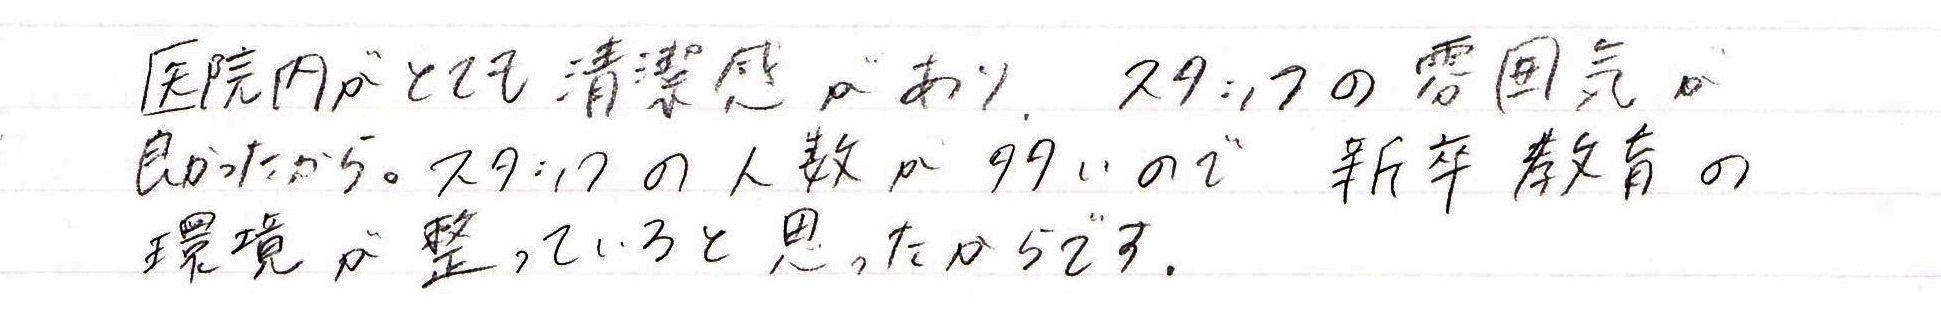 医院内がとても清潔感があり、スタッフの雰囲気が
良かったから。スタッフの人数が多いので新卒教育の
環境が整っていると思ったからです。